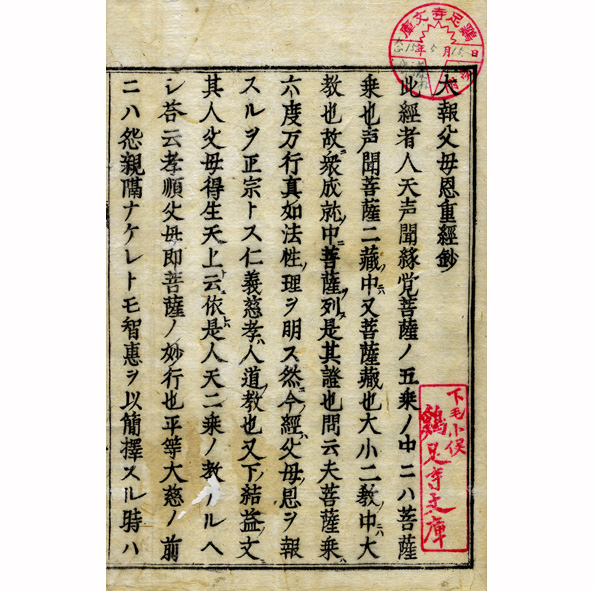 大報父母恩重經鈔
此經者人天声聞縁覚菩薩ノ五乗ノ中ニハ菩薩
乗也声聞菩薩二藏ノ中ニハ又菩薩藏也大小二教ノ中ニハ大
教也故ニ衆成就ノ中ニ菩薩ノ列ス是其證也問云夫菩薩乗ハ
六度万行真如法性ノ理ヲ明ス然ニ今ノ經ハ父母ノ恩ヲ報
スルヲ正宗トス仁義慈孝ハ人道ノ教也又下ノ結益ノ文ニ
其人父母得生天上云依是人天二乗ノ教ルヘ
シ荅云孝順父母即菩薩ノ妙行也平等大慈ノ前
ニハ怨親隔ナケレトモ智恵ヲ以簡擇スル時ハ
鷄足寺文庫
年 月 日
下毛小俣
鷄足寺文庫